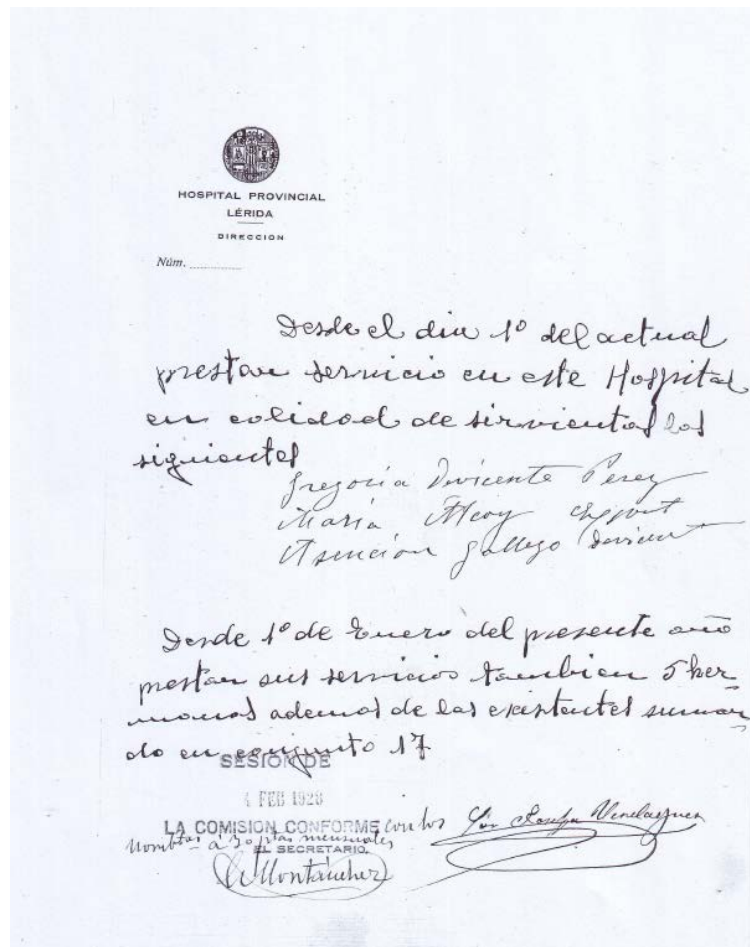 HOSPITAL PROVINCIAL
LÉRIDA
DIRECCION
Núm.
Desde el dia 1º del actual
prestan servicio en este Hospital
en calidad de sirvientas las
siguientes
Gregoria Devicente Perez
María Alcoy
Asención Gallego Devicent
Desde 1º de Enero del presente año
prestan sus servicios tambien 5 her-
manas ademas de las existentes suman-
do en conjunto 17
SESIÓN DE
FEB 1928
LA COMISION CONFORME con los
á 30 ptas mensuales
EL SECRETARIO,
Sor Josefa